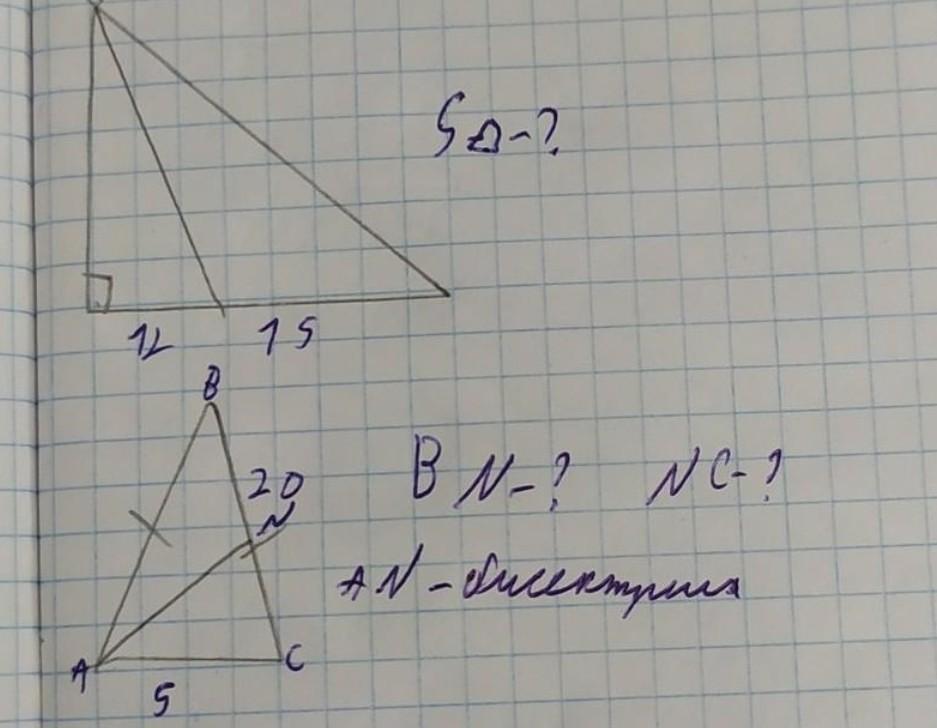 S△-?
12 15
B
20
N
BN-? NC-?
AN-биссектриса
A
C
5